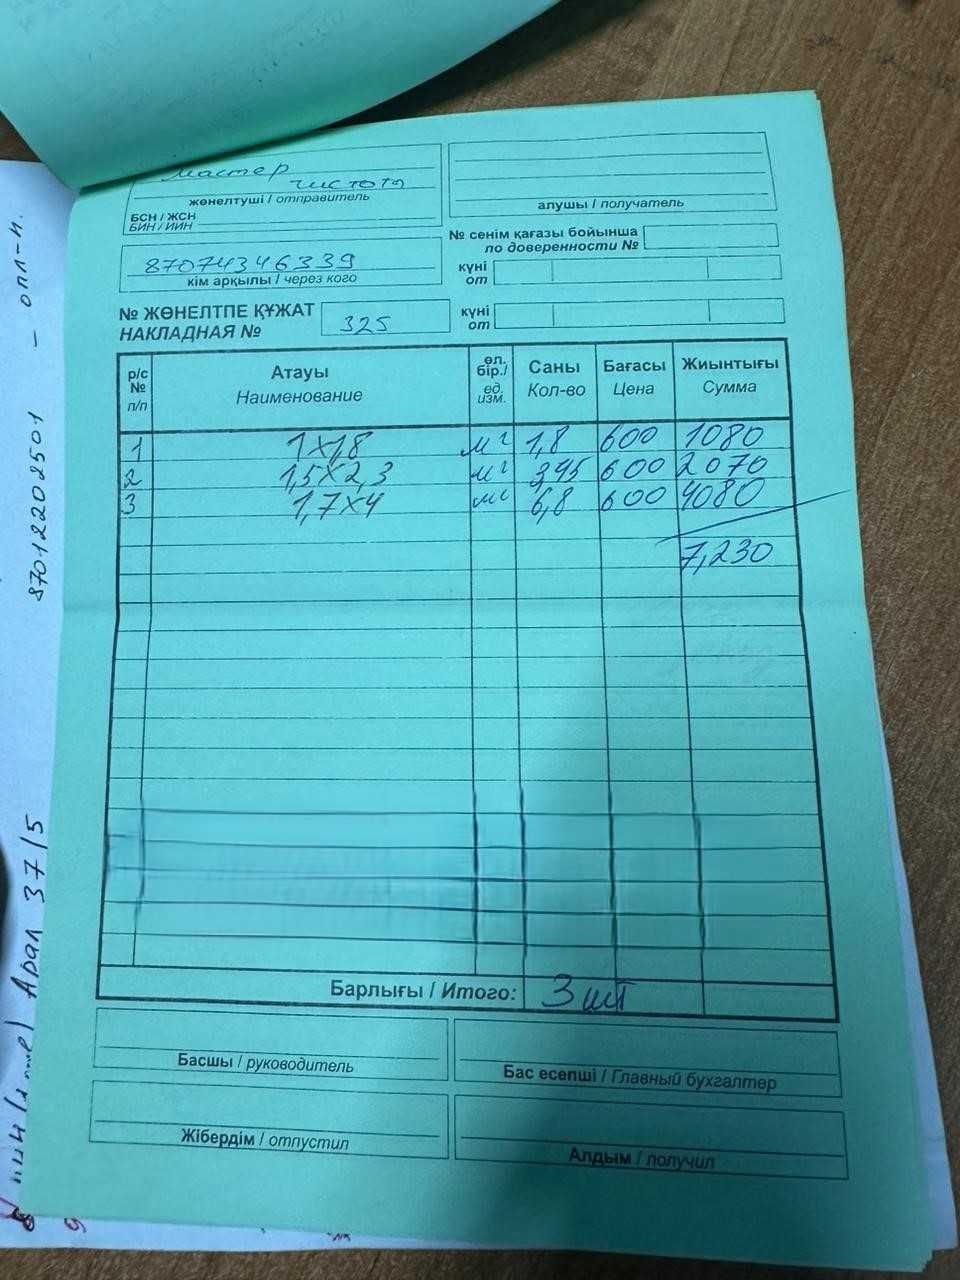 мастер
чистота
жөнелтуші / отправитель
БСН / ЖСН
БИН / ИИН
алушы / получатель
№ сенім қағазы бойынша
по доверенности №
87074346339
кім арқылы / через кого
күні
от
№ ЖӨНЕЛТПЕ ҚҰЖАТ
НАКЛАДНАЯ №
325
күні
от
р/с № п/п Атауы Наименование өл. бір./ ед. изм. Саны Кол-во Бағасы Цена Жиынтығы Сумма
1 1х1,8 м² 1,8 600 1080
2 1,5х2,3 м² 3,45 600 2070
3 1,7х4 м² 6,8 600 4080
7,230
Барлығы / Итого: 3 шт
Басшы / руководитель
Бас есепші / Главный бухгалтер
Жібердім / отпустил
Алдым / получил
87012202501 - опл-н.
Арал 37/5